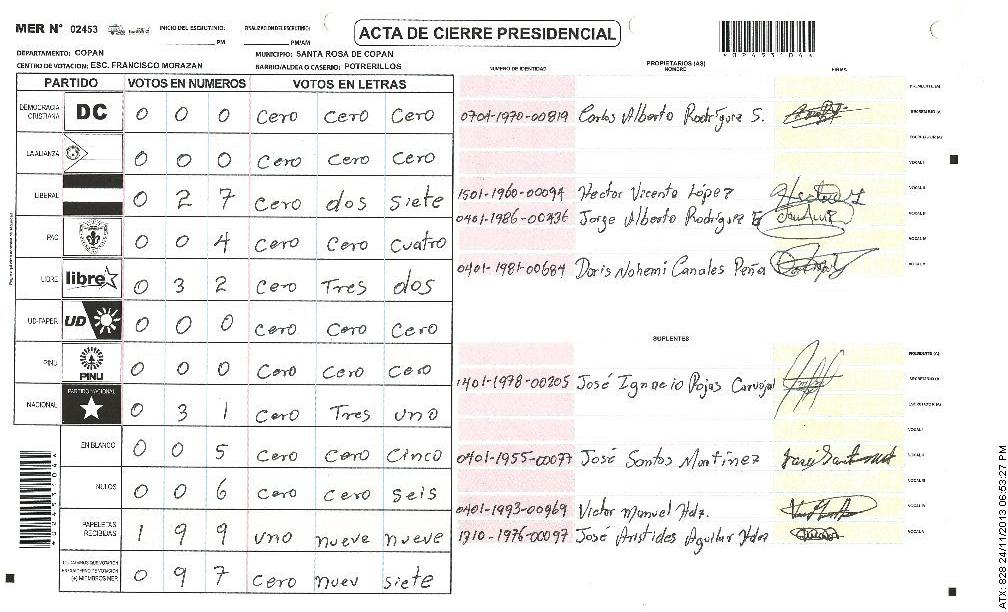 MER N° 02453 INICIO DEL ESCRUTINIO: PM FINALIZACION DEL ESCRUTINIO: PM/AM
ACTA DE CIERRE PRESIDENCIAL
DEPARTAMENTO: COPAN MUNICIPIO: SANTA ROSA DE COPAN
CENTRO DE VOTACION: ESC. FRANCISCO MORAZAN BARRIO/ALDEA O CASERIO: POTRERILLOS
PARTIDO VOTOS EN NUMEROS VOTOS EN LETRAS
DEMOCRACIA CRISTIANA DC 0 0 0 Cero Cero Cero
LA ALIANZA 0 0 0 Cero Cero Cero
LIBERAL 0 2 7 Cero dos siete
PAC 0 0 4 Cero Cero cuatro
LIBRE libre 0 3 2 Cero Tres dos
UD-FAPER UD 0 0 0 Cero Cero Cero
PINU PINU 0 0 0 Cero Cero Cero
NACIONAL PARTIDO NACIONAL 0 3 1 Cero Tres uno
EN BLANCO 0 0 5 Cero Cero Cinco
NULOS 0 0 6 Cero Cero seis
PAPELETAS RECIBIDAS 1 9 9 uno nueve nueve
CIUDADANOS QUE VOTARON
(+) MIEMBROS MER 0 9 7 Cero nuev siete
PROPIETARIOS (AS)
NUMERO DE IDENTIDAD NOMBRE FIRMA
PRESIDENTE (A)
0704-1970-00819 Carlos Alberto Rodríguez S. SECRETARIO (A)
ESCRUTADOR (A)
VOCAL I
1501-1960-00094 Hector Vicente López VOCAL II
0401-1986-00736 Jorge Alberto Rodríguez E VOCAL III
VOCAL IV
0401-1981-00684 Doris Nohemi Canales Peña VOCAL V
SUPLENTES
PRESIDENTE (A)
1401-1978-00205 José Ignacio Rojas Carvajal SECRETARIO (A)
ESCRUTADOR (A)
VOCAL I
0401-1955-00077 José Santos Martínez VOCAL II
VOCAL III
0401-1993-00969 Victor Manuel Hdz. VOCAL IV
1310-1976-00097 José Aristides Aguilar Hdez VOCAL V
ATX: 828 24/11/2013 06:53:27 PM